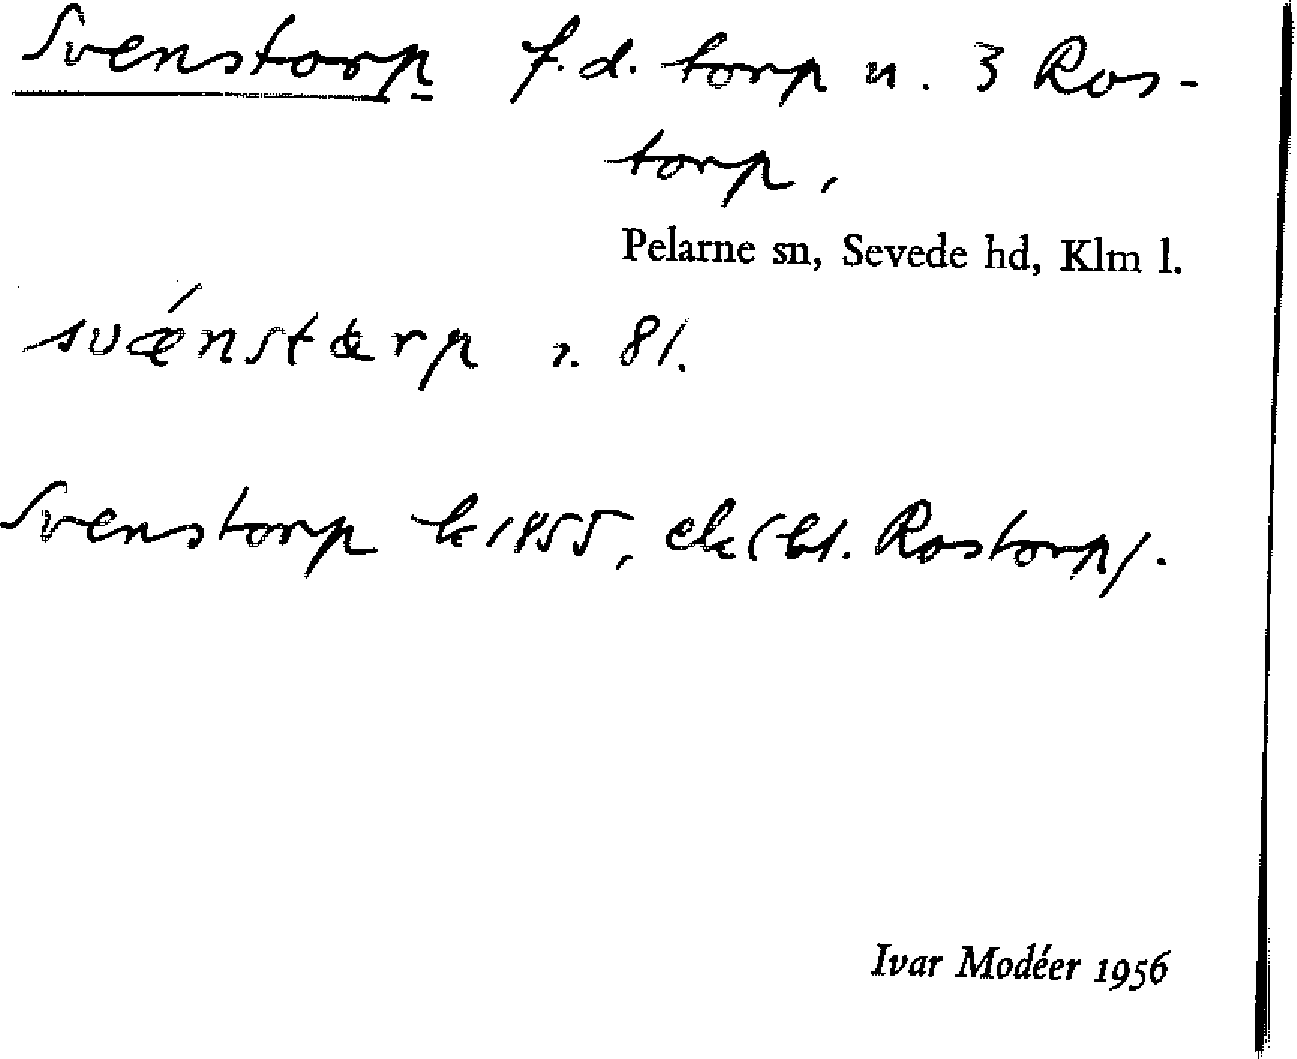 Svenstorp f.d. torp u. 3 Ros-
torp,
Pelarne sn, Sevede hd, Klm l.
svǽnstærp r. 81.
Svenstorp k 1855, ek (bl. Rostorp).
Ivar Modéer 1956